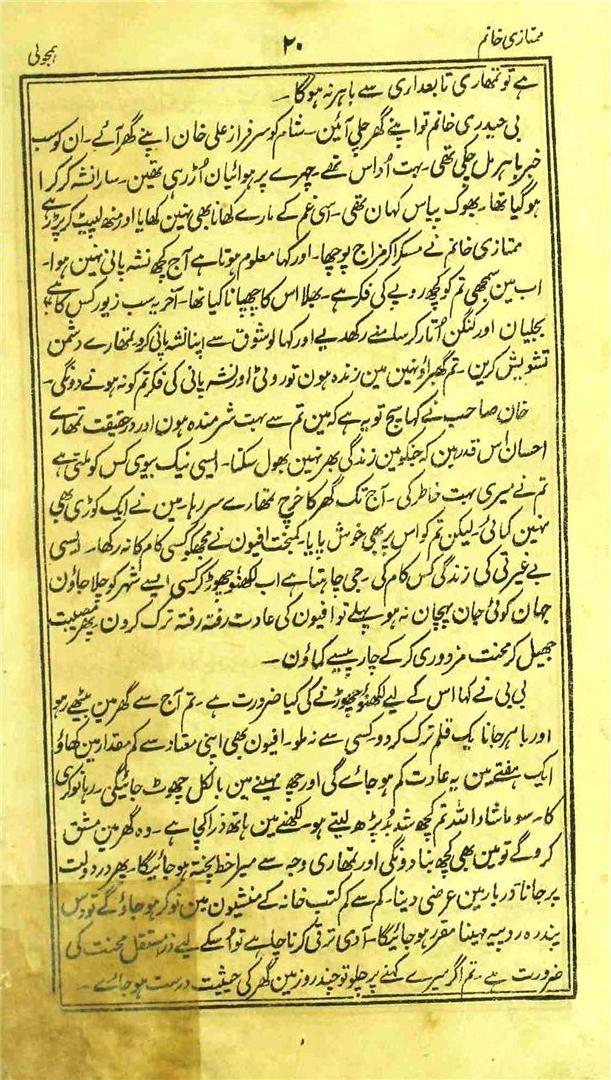 ممتازی خانم ۲۰ ہمجولی
ہے تو تمھاری تابعداری سے باہر نہ ہوگا۔
بی حیدری خانم تو اپنے گھر چلی آئین۔ شام کو سرفراز علی خان اپنے گھر آئے۔ ان کو سب
خبر باہر مل چکی تھی۔ بہت اُداس تھے۔ چہرے پر ہوائیان اُڑ رہی تھین۔ سارا نشہ کرکرا
ہوگیا تھا۔ بھوک پیاس کہان تھی۔ اسی غم کے مارے کھانا بھی نہین کھایا اور منھ لپیٹ کر پڑ رہے
ممتازی خانم نے مسکرا کر مزاج پوچھا۔ اور کہا معلوم ہوتا ہے آج کچھ نشہ پانی نہین ہوا۔
اب مین سمجھی تم کو کچھ روپے کی فکر ہے۔ بھلا اس کا چھپانا کیا تھا۔ آخر یہ سب زیور کس کا ہے؟
بجلیان اور کنگن اُتار کر سامنے رکھدیے اور کہا لو شوق سے اپنا نشہ پانی کرو تمھارے دشمن
تشویش کرین۔ تم گھبراؤ نہین مین زندہ ہون تو روٹی اور نشہ پانی کی فکر تم کو نہ ہونے دونگی۔
خان صاحب نے کہا سچ تو یہ ہے کہ مین تم سے بہت شرمندہ ہون اور درحقیقت تمھارے
احسان اُس قدر ہین کہ جنکو مین زندگی بھر نہین بھول سکتا۔ ایسی نیک بیوی کس کو ملتی ہے
تم نے میری بہت خاطر کی۔ آج تک گھر کا خرچ تمھارے سر رہا۔ مین نے ایک کوڑی بھی
نہین کمائی۔ لیکن تم کو اس پر بھی خوش پایا۔ کمبخت افیون نے مجھکو کسی کام کا نہ رکھا۔ ایسی
بے غیرتی کی زندگی کس کام کی۔ جی چاہتا ہے اب لکھنؤ چھوڑ کر کسی ایسے شہر کو چلا جاؤن
جہان کوئی جان پہچان نہ ہو پہلے تو افیون کی عادت رفتہ رفتہ ترک کرون پھر مصیبت
جھیل کر محنت مزدوری کرکے چار پیسے کماؤن۔
بی بی نے کہا اس کے لیے لکھنؤ چھوڑنے کی کیا ضرورت ہے۔ تم آج سے گھر مین بیٹھے رہو
اور باہر جانا یک قلم ترک کردو۔ کسی سے نہ ملو۔ افیون بھی اپنی معتاد سے کم مقدار مین کھاؤ
ایک ہفتے مین یہ عادت کم ہو جائے گی اور چھ مہینے مین بالکل چھوٹ جائیگی۔ رہا نوکری
کا۔ سو ماشاء اللہ تم کچھ شد بُد پڑھ لیتے ہو۔ لکھنے مین ہاتھ ذرا کچا ہے۔ وہ گھر مین مشق
کروگے تو مین بھی کچھ بتا دونگی اور تمھاری وجہ سے میرا خط پختہ ہو جائیگا۔ پھر در دولت
پر جانا دربار مین عرضی دینا۔ کم سے کم کتب خانہ کے منشیون مین نوکر ہو جاؤگے تو دس
پندرہ روپیہ مہینا مقرر ہو جائیگا۔ آدمی ترقی کرنا چاہے تو اُسکے لیے ذرا مستقل محنت کی
ضرورت ہے۔ تم اگر میرے کہنے پر چلو تو چند روز مین گھر کی حیثیت درست ہو جائے۔